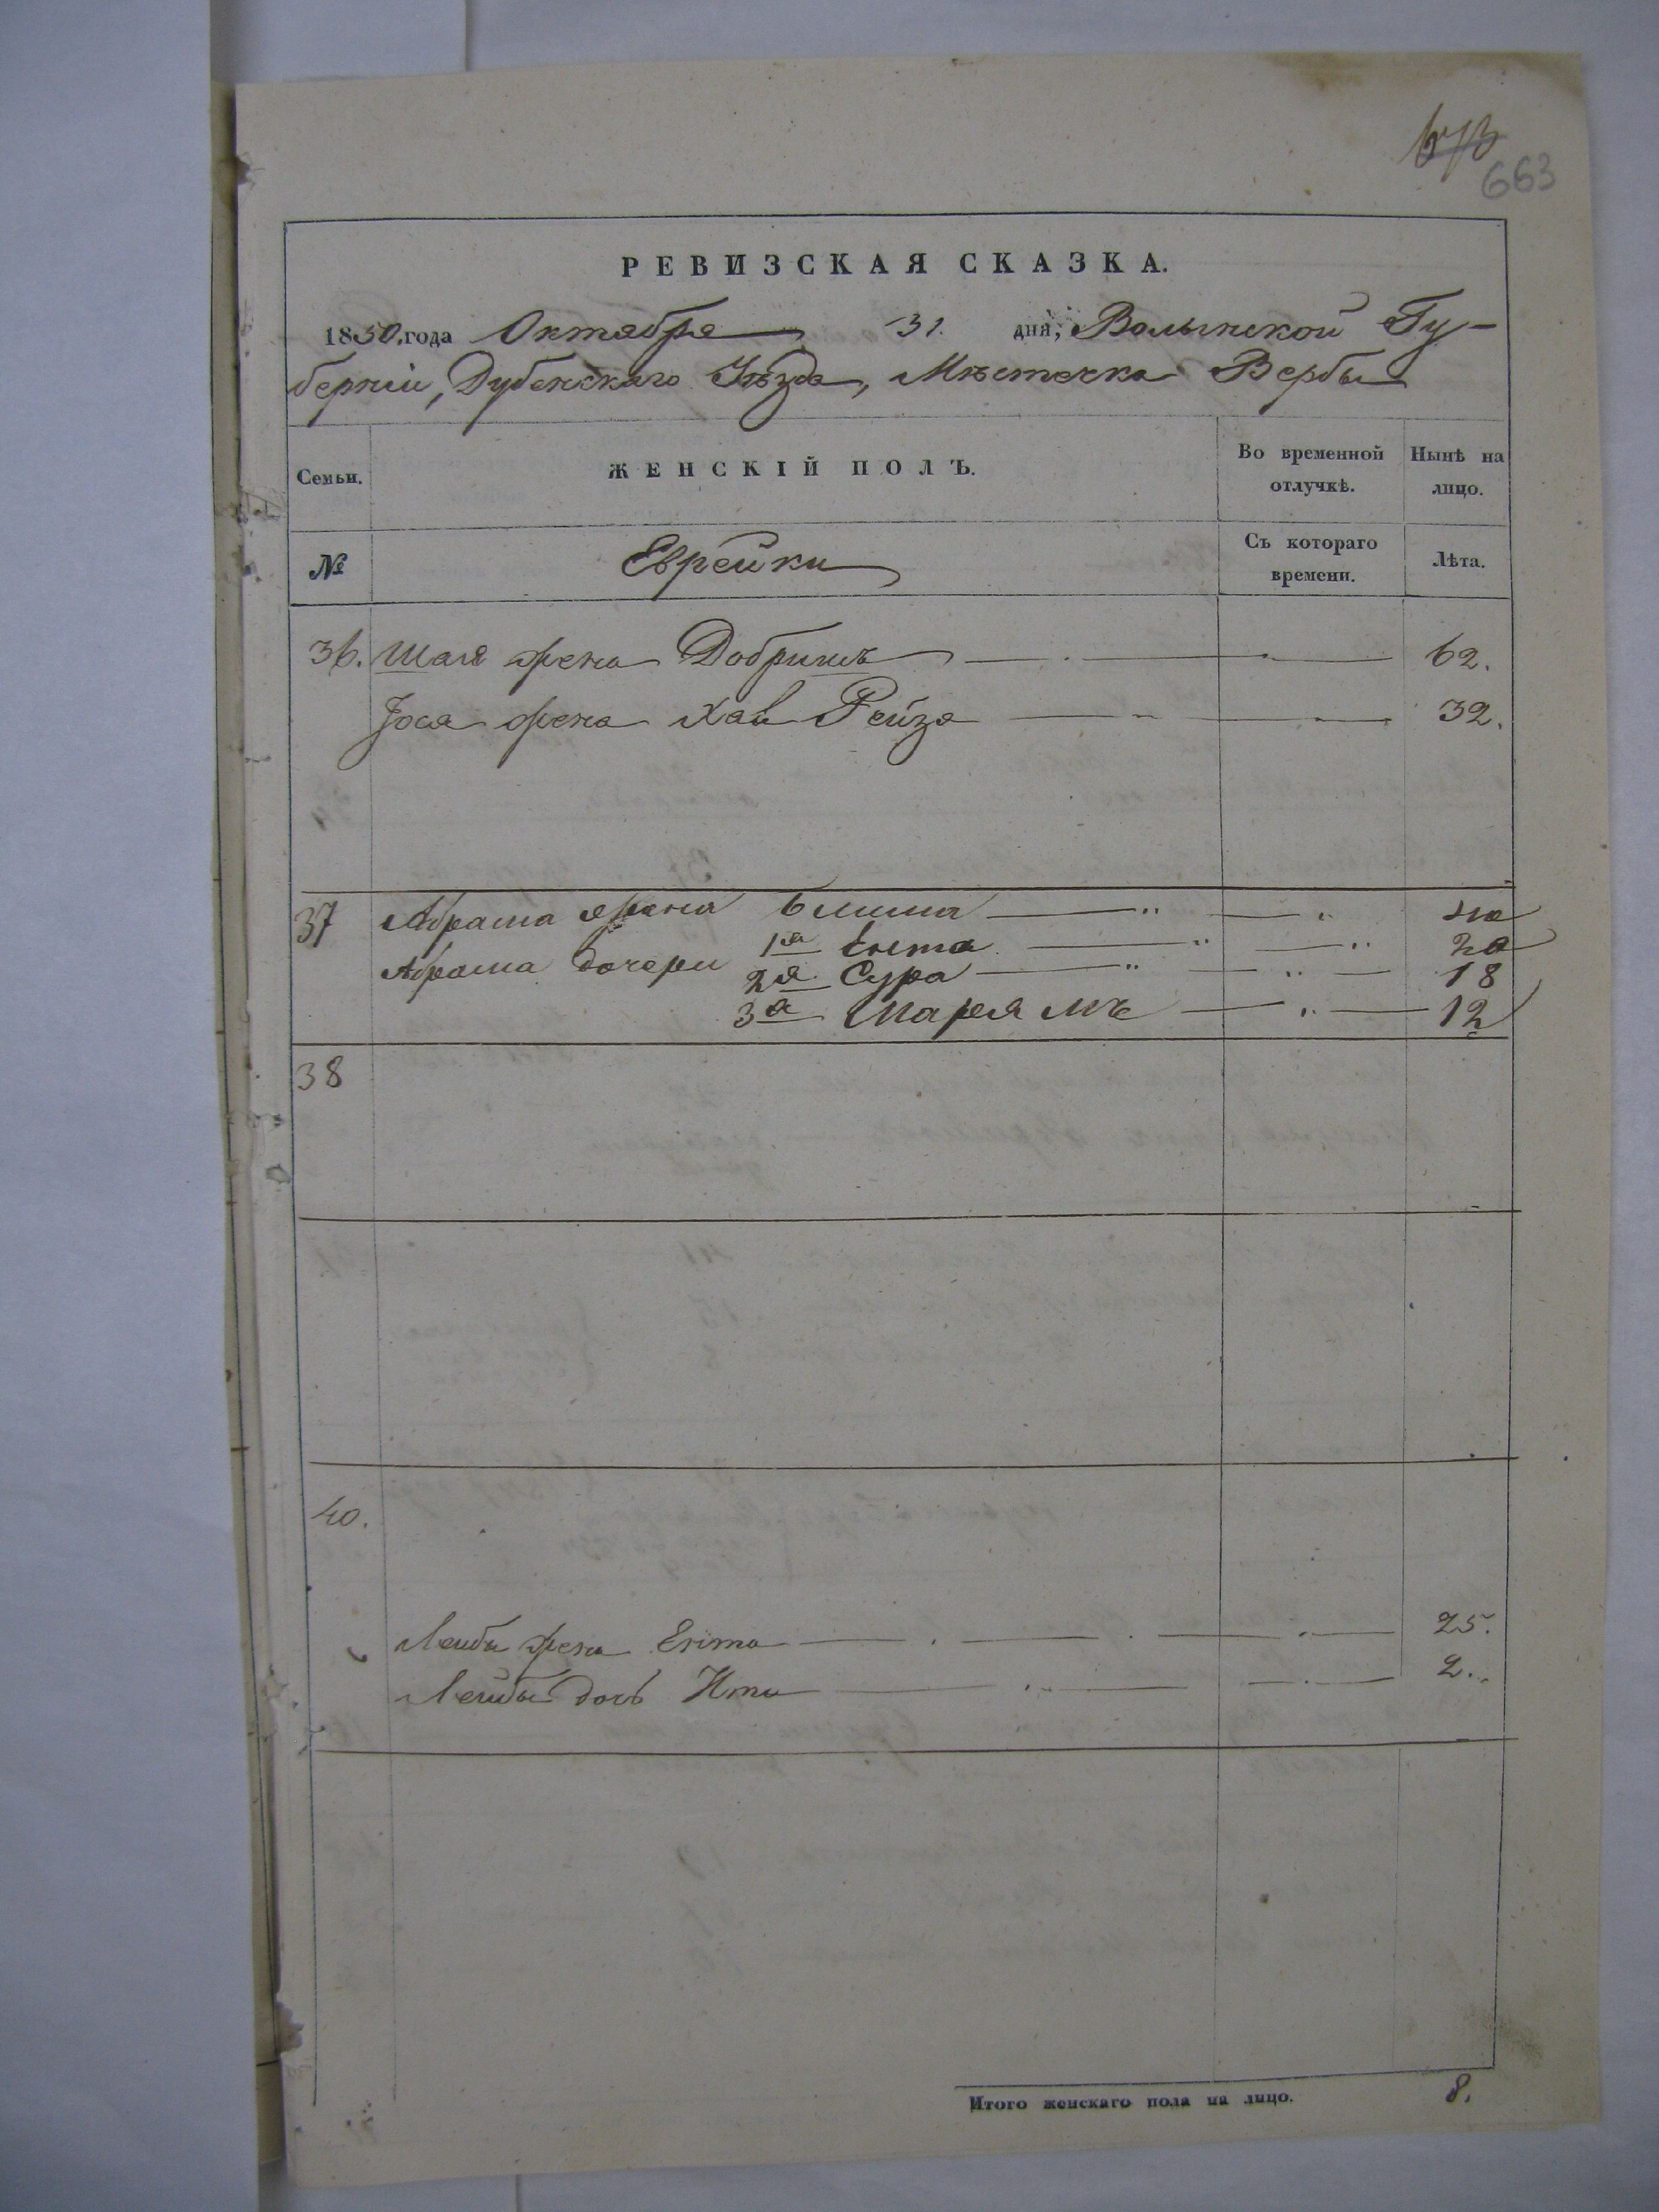 673
663
РЕВИЗСКАЯ СКАЗКА.
1850. года Октября 31. дня, Волынской Гу-
берніи, Дубенскаго Уѣзда, Мѣстечка Вербы
Семьи. ЖЕНСКІЙ ПОЛЪ. Во временной отлучкѣ. Нынѣ на лицо.
№ Еврейки Съ котораго времени. Лѣта.
36. Шая жена Добришъ 62.
Іося жена Хая Рейза 32.
37 Абрама жена 40
Абрама дочери 1я Ента 20
2я Сура 18
3я Марьямъ 12
38
40.
Лейбы жена Ента 25.
Лейбы дочь Ита 2.
Итого женскаго пола на лицо. 8.